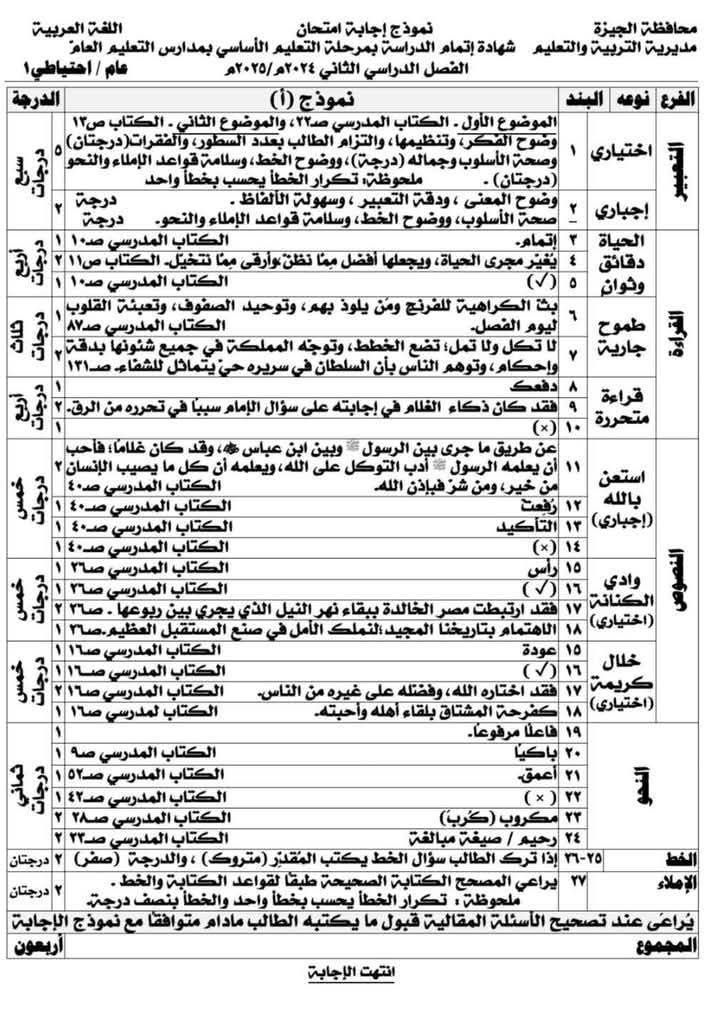 محافظة الجيزة نموذج إجابة امتحان اللغة العربية
مديرية التربية والتعليم شهادة إتمام الدراسة بمرحلة التعليم الأساسي بمدارس التعليم العام
الفصل الدراسي الثاني ٢٠٢٤م/٢٠٢٥م عام / احتياطي١
الفرع نوعه البند نموذج (أ) الدرجة
التعبير اختياري ١ الموضوع الأول. الكتاب المدرسي صـ٢٢، والموضوع الثاني. الكتاب ص١٣ ٥ سبع درجات
وضوح الفكر، وتنظيمها، والتزام الطالب بعدد السطور، والفقرات(درجتان)
وصحة الأسلوب وجماله (درجة)، ووضوح الخط، وسلامة قواعد الإملاء والنحو
(درجتان) . ملحوظة: تكرار الخطأ يحسب بخطأ واحد
إجباري ٢ وضوح المعنى ، ودقة التعبير ، وسهولة الألفاظ . درجة ٢
صحة الأسلوب، ووضوح الخط، وسلامة قواعد الإملاء والنحو. درجة
القراءة الحياة دقائق وثوان ٣ إتمام. الكتاب المدرسي صـ١٠ ١ أربع درجات
٤ يغير مجرى الحياة، ويجعلها أفضل مما نظن،وأرقى مما نتخيل. الكتاب ص١١ ٢
٥ (✓) الكتاب المدرسي صـ١٠ ١
طموح جارية ٦ بث الكراهية للفرنج ومن يلوذ بهم، وتوحيد الصفوف، وتعبئة القلوب ١ ثلاث درجات
ليوم الفصل. الكتاب المدرسي صـ٨٧
٧ لا تكل ولا تمل؛ تضع الخطط، وتوجه المملكة في جميع شئونها بدقة ٢
وإحكام، وتوهم الناس بأن السلطان في سريره حي يتماثل للشفاء. صـ١٣١
قراءة متحررة ٨ دفعك ١ أربع درجات
٩ فقد كان ذكاء الغلام في إجابته على سؤال الإمام سببا في تحرره من الرق. ٢
١٠ (×) ١
النصوص استعن بالله (إجباري) ١١ عن طريق ما جرى بين الرسول ﷺ وبين ابن عباس، وقد كان غلاما؛ فأحب ٢ خمس درجات
أن يعلمه الرسول ﷺ أدب التوكل على الله، ويعلمه أن كل ما يصيب الإنسان
من خير، ومن شر فبإذن الله. الكتاب المدرسي صـ٤٠
١٢ رُفِعت الكتاب المدرسي صـ٤٠ ١
١٣ التأكيد الكتاب المدرسي صـ٤٠ ١
١٤ (×) الكتاب المدرسي صـ٤٠ ١
وادي الكنانة (اختياري) ١٥ رأس الكتاب المدرسي صـ٢٦ ١ خمس درجات
١٦ (✓) الكتاب المدرسي صـ٢٦ ١
١٧ فقد ارتبطت مصر الخالدة ببقاء نهر النيل الذي يجري بين ربوعها . صـ٢٦ ٢
١٨ الاهتمام بتاريخنا المجيد؛لنملك الأمل في صنع المستقبل العظيم.صـ٢٦ ١
خلال كريمة (اختياري) ١٥ عودة الكتاب المدرسي صـ١٦ ١ خمس درجات
١٦ (✓) الكتاب المدرسي صـ١٦ ١
١٧ فقد اختاره الله، وفضله على غيره من الناس. الكتاب المدرسي صـ١٦ ٢
١٨ كفرحة المشتاق بلقاء أهله وأحبته. الكتاب لمدرسي صـ١٦ ١
النحو ١٩ فاعلًا مرفوعًا. ١ ثماني درجات
٢٠ باكيًا الكتاب المدرسي صـ٩ ١
٢١ أعمق. الكتاب المدرسي صـ٥٢ ١
٢٢ (×) الكتاب المدرسي صـ٤٢ ١
٢٣ مكروب (كُرِبَ) الكتاب المدرسي صـ٢٨ ٢
٢٤ رحيم / صيغة مبالغة الكتاب المدرسي صـ٢٣ ٢
الخط ٢٥-٢٦ إذا ترك الطالب سؤال الخط يكتب المُقدِّر (متروك) ، والدرجة (صفر) ٢ درجتان
الإملاء ٢٧ يراعي المصحح الكتابة الصحيحة طبقًا لقواعد الكتابة والخط . ٢ درجتان
ملحوظة : تكرار الخطأ يحسب بخطأ واحد والخطأ بنصف درجة.
يُراعَى عند تصحيح الأسئلة المقالية قبول ما يكتبه الطالب مادام متوافقًا مع نموذج الإجابة
المجموع أربعون
انتهت الإجابة